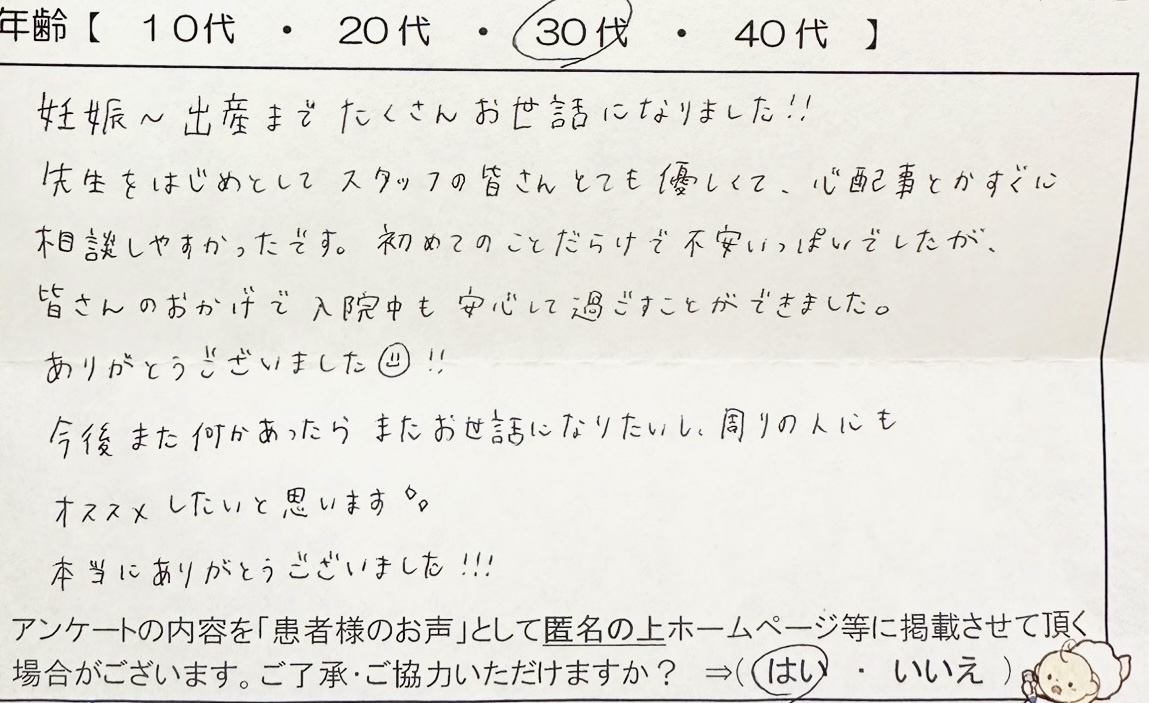 年齢【 10代 ・ 20代 ・ 30代 ・ 40代 】
妊娠～出産まで たくさん お世話になりました!!
先生をはじめとして スタッフの皆さん とても優しくて、心配事とかすぐに
相談しやすかったです。初めてのことだらけで不安いっぱいでしたが、
皆さんのおかげで入院中も安心して過ごすことができました。
ありがとうございました!!
今後また何かあったら またお世話になりたいし、周りの人にも
オススメしたいと思います
本当にありがとうございました!!!
アンケートの内容を「患者様のお声」として匿名の上ホームページ等に掲載させて頂く
場合がございます。ご了承・ご協力いただけますか？ ⇒( はい ・ いいえ )